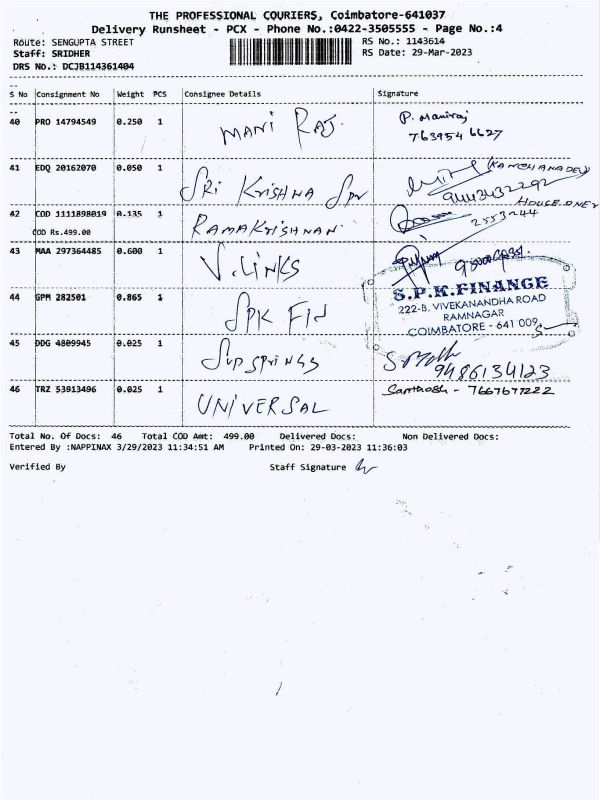 THE PROFESSIONAL COURIERS, Coimbatore-641037
Delivery Runsheet - PCX - Phone No.:0422-3505555 - Page No.:4
Route: SENGUPTA STREET
RS No.: 1143614
Staff: SRIDHER
RS Date: 29-Mar-2023
DRS No.: DCJB114361404
S No Consignment No Weight PCS Consignee Details Signature
40 PRO 14794549 0.250 1 MANI RAJ. P. Maniraj
763954 6627
41 EDQ 20162070 0.050 1 SRI KRISHNA (KANCHANADEVI)
9443432292
HOUSE ONER
42 COD 1111898019 0.135 1 RAMAKRISHNAN 2553244
COD Rs.499.00
43 MAA 297364485 0.600 1 V.LINKS
S.P.K.FINANCE
222-B, VIVEKANANDHA ROAD
RAMNAGAR
COIMBATORE - 641 009
44 GPM 282501 0.865 1 SPK FIN
45 DDG 4809945 0.025 1 SUP SPRINGS
9486134123
46 TRZ 53913496 0.025 1 UNIVERSAL Santhosh - 7667677222
Total No. Of Docs: 46 Total COD Amt: 499.00 Delivered Docs: Non Delivered Docs:
Entered By :NAPPINAX 3/29/2023 11:34:51 AM Printed On: 29-03-2023 11:36:03
Verified By Staff Signature